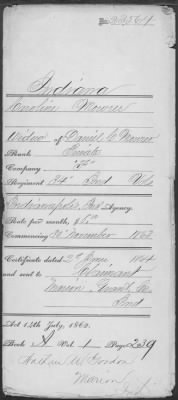 Indiana
Caroline Mowrer
Widow of Daniel C. Mowrer
Rank Private
Company "F"
Regiment 84" Ind Vols
Indianapolis Ind Agency.
Rate per month, $8 00
Commencing November 1862
Certificate dated 2" June 1864
and sent to Claimant
Marion Grant Co
Ind
Act 14th July, 1862.
Book A Vol. 1 Page 239
Gordon
Marion